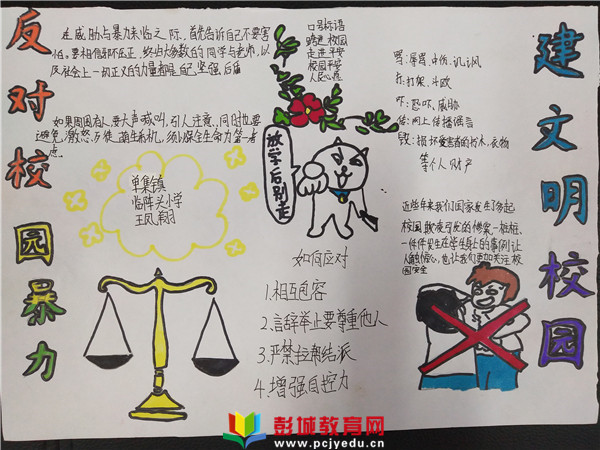 反对校园暴力
在威胁与暴力来临之际,首先告诉自己不要害
怕。要相信邪不压正,终归大多数的同学与老师,以
及社会上一切正义的力量都是自己坚强后盾
如果周围有人,要大声喊叫,引人注意,同时也要
避免激怒歹徒,萌生杀机,须以保全生命为第一考
虑。
单集镇
临阵头小学
王凤翔
口号标语
跨进校园
走进平安
校园平安
人民心愿
放学后别走
骂:辱骂、中伤、讥讽
打:打架、斗殴
吓:恐吓、威胁
传:网上传播谣言
毁:损坏受害者的书本、衣物
等个人财产
近些年来我们国家发生了多起
校园欺凌可发的惨案一桩桩、
一件件发生在学生身上的事例让
也让我们更加关注校
园安全
如何应对
1.相互包容
2.言辞举止要尊重他人
3.严禁拉帮结派
4.增强自控力
建文明校园
彭城教育网
www.pcjyedu.cn